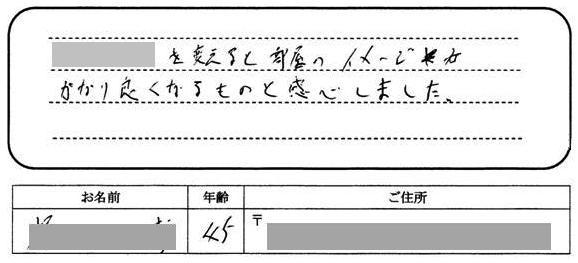 を変えると部屋のイメージが
かなり良くなるものと感心しました。
お名前 年齢 ご住所
45 〒